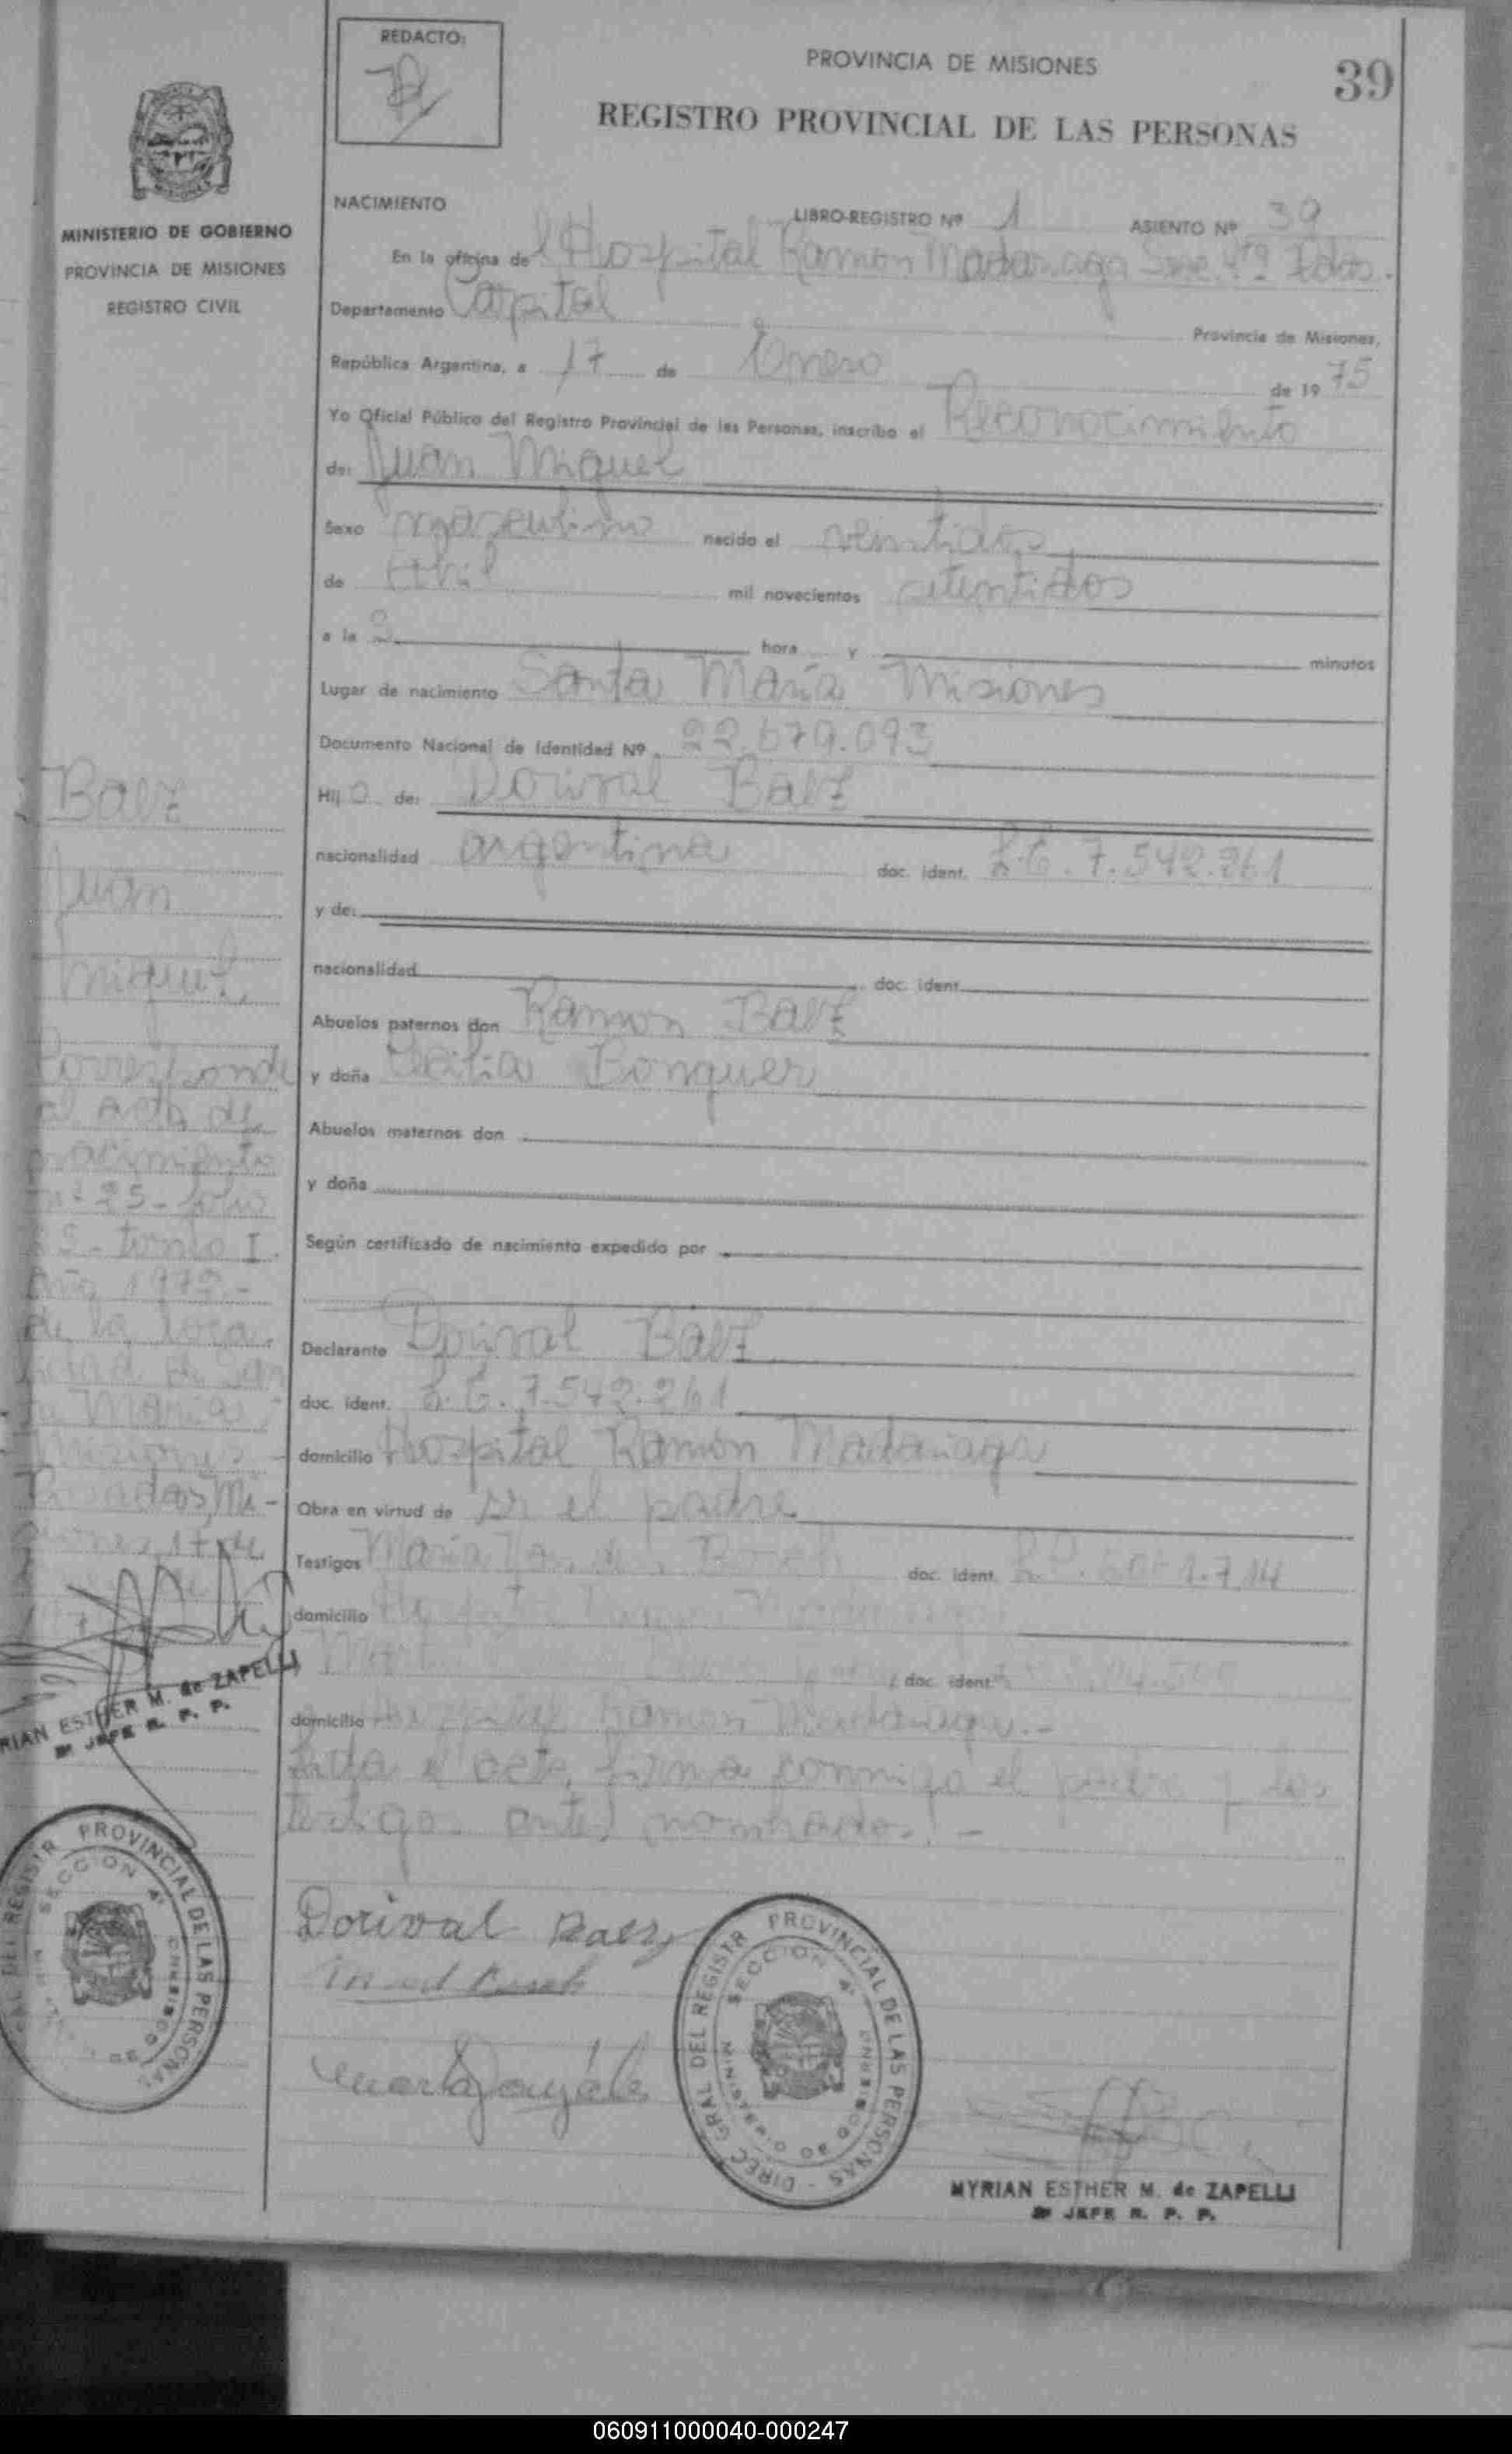 REDACTO:
PROVINCIA DE MISIONES
39
REGISTRO PROVINCIAL DE LAS PERSONAS
MINISTERIO DE GOBIERNO
PROVINCIA DE MISIONES
REGISTRO CIVIL
NACIMIENTO
LIBRO-REGISTRO Nº 1 ASIENTO Nº 39
En la oficina del Hospital Ramon Madariaga 4ta Pdas.
Departamento Capital Provincia de Misiones,
República Argentina, a 17 de Enero de 1975
Yo Oficial Público del Registro Provincial de las Personas, inscribo el Reconocimiento
de: Juan Miguel
Sexo masculino nacido el veintidos
de Abril mil novecientos setentidos
a la 2 hora y minutos
Lugar de nacimiento Santa María Misiones
Documento Nacional de Identidad Nº 22.679.093
Hijo de: Dorival Baez
nacionalidad argentina doc. ident. L.E. 7.542.261
y de:
nacionalidad doc. ident.
Abuelos paternos don Ramon Baez
y doña
Abuelos maternos don
y doña
Según certificado de nacimiento expedido por
Declarante Dorival Baez
doc. ident. L.E. 7.542.261
domicilio Hospital Ramón Madariaga
Obra en virtud de ser el padre
Testigos María doc. ident.
domicilio Hospital Ramon Madariaga
doc. ident.
domicilio Hospital Ramon Madariaga.-
Leida el acta, firma conmigo el padre y los
testigos antes nombrados.-
Baez
Juan
Miguel
Corresponde
al acta de
nacimiento
nº 25- folio
25- tomo I.
Año 1972.-
de la loca-
lidad de San
ta María,
Misiones -
Posadas, Mi-
siones, 17 de
MYRIAN ESTHER M. de ZAPELLI
JEFE R. P. P.
DIREC GRAL DEL REGISTR PROVINCIAL DE LAS PERSONAS
SECCION 4ª
Dorival Baez
Marta González
DIREC GRAL DEL REGISTR PROVINCIAL DE LAS PERSONAS -
SECCION 4ª
MINISTERIO DE GOBIERNO
MYRIAN ESTHER M. de ZAPELLI
JEFE R. P. P.
060911000040-000247